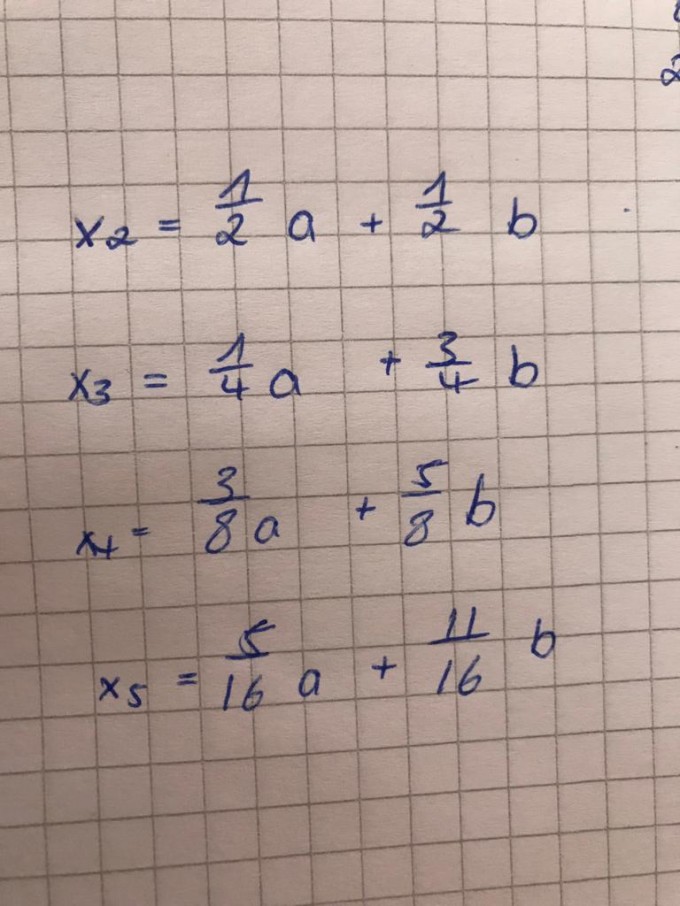 x₂ = 1/2 a + 1/2 b
x₃ = 1/4 a + 3/4 b
x₄ = 3/8 a + 5/8 b
x₅ = 5/16 a + 11/16 b